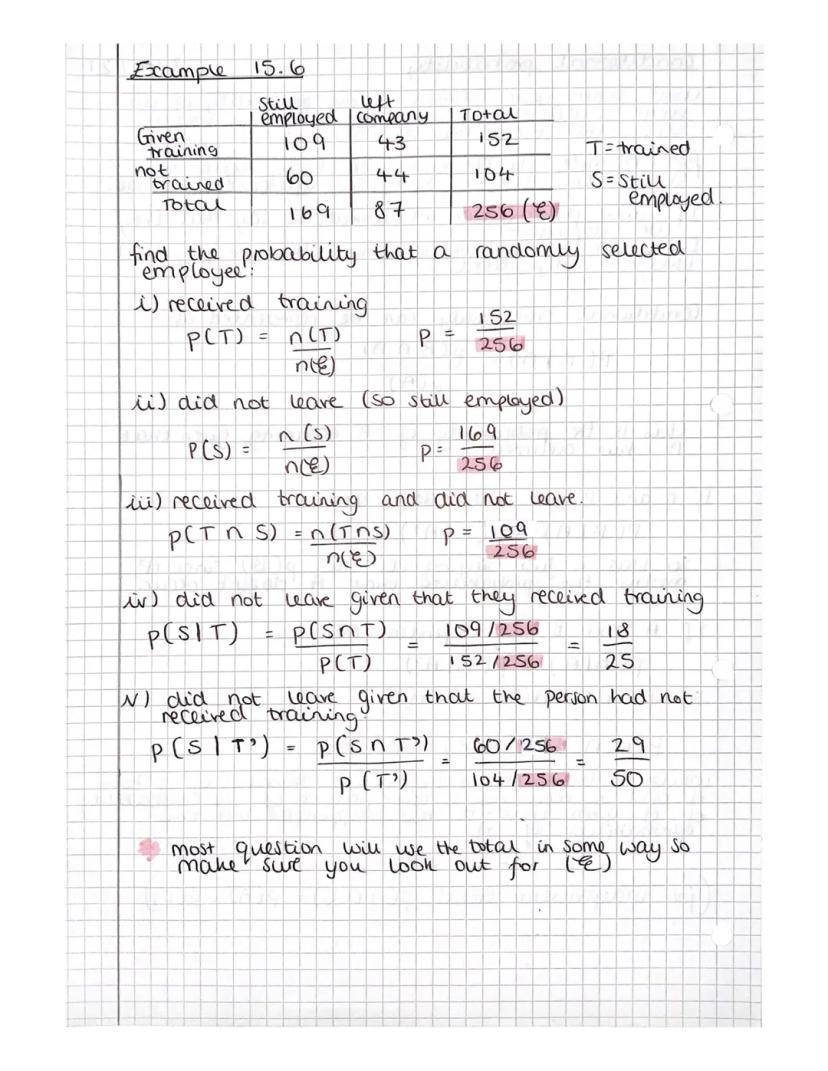 Example 15.6
Still employed | left company | Total
Given training | 109 | 43 | 152
not trained | 60 | 44 | 104
Total | 169 | 87 | 256 (ξ)
T = trained
S = Still employed.
find the probability that a randomly selected
employee:
i) received training
P(T) = n(T)/n(ξ) P = 152/256
ii) did not leave (so still employed)
P(S) = n(S)/n(ξ) P = 169/256
iii) received training and did not leave.
P(T ∩ S) = n(T∩S)/n(ξ) P = 109/256
iv) did not leave given that they received training
P(S|T) = P(S∩T)/P(T) = 109/256 / 152/256 = 18/25
v) did not leave given that the person had not
received training.
P(S|T') = P(S∩T')/P(T') = 60/256 / 104/256 = 29/50
most question will use the total in some way so
make sure you look out for (ξ)